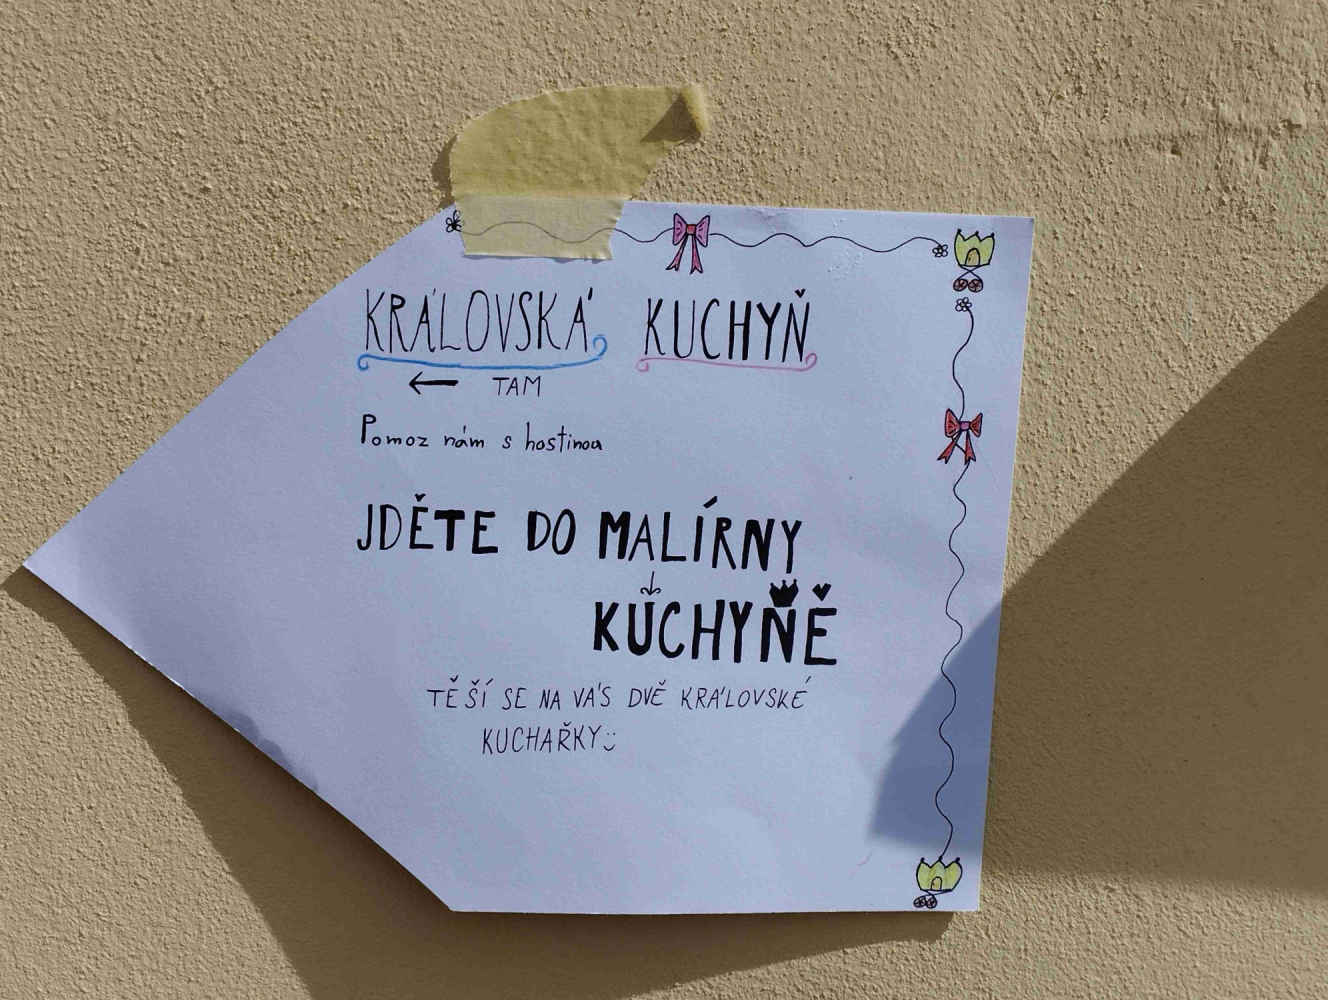 KRÁLOVSKÁ KUCHYŇ
← TAM
Pomoz nám s hostinou
JDĚTE DO MALÍRNY
KUCHYNĚ
TĚŠÍ SE NA VÁS DVĚ KRÁLOVSKÉ
KUCHAŘKY